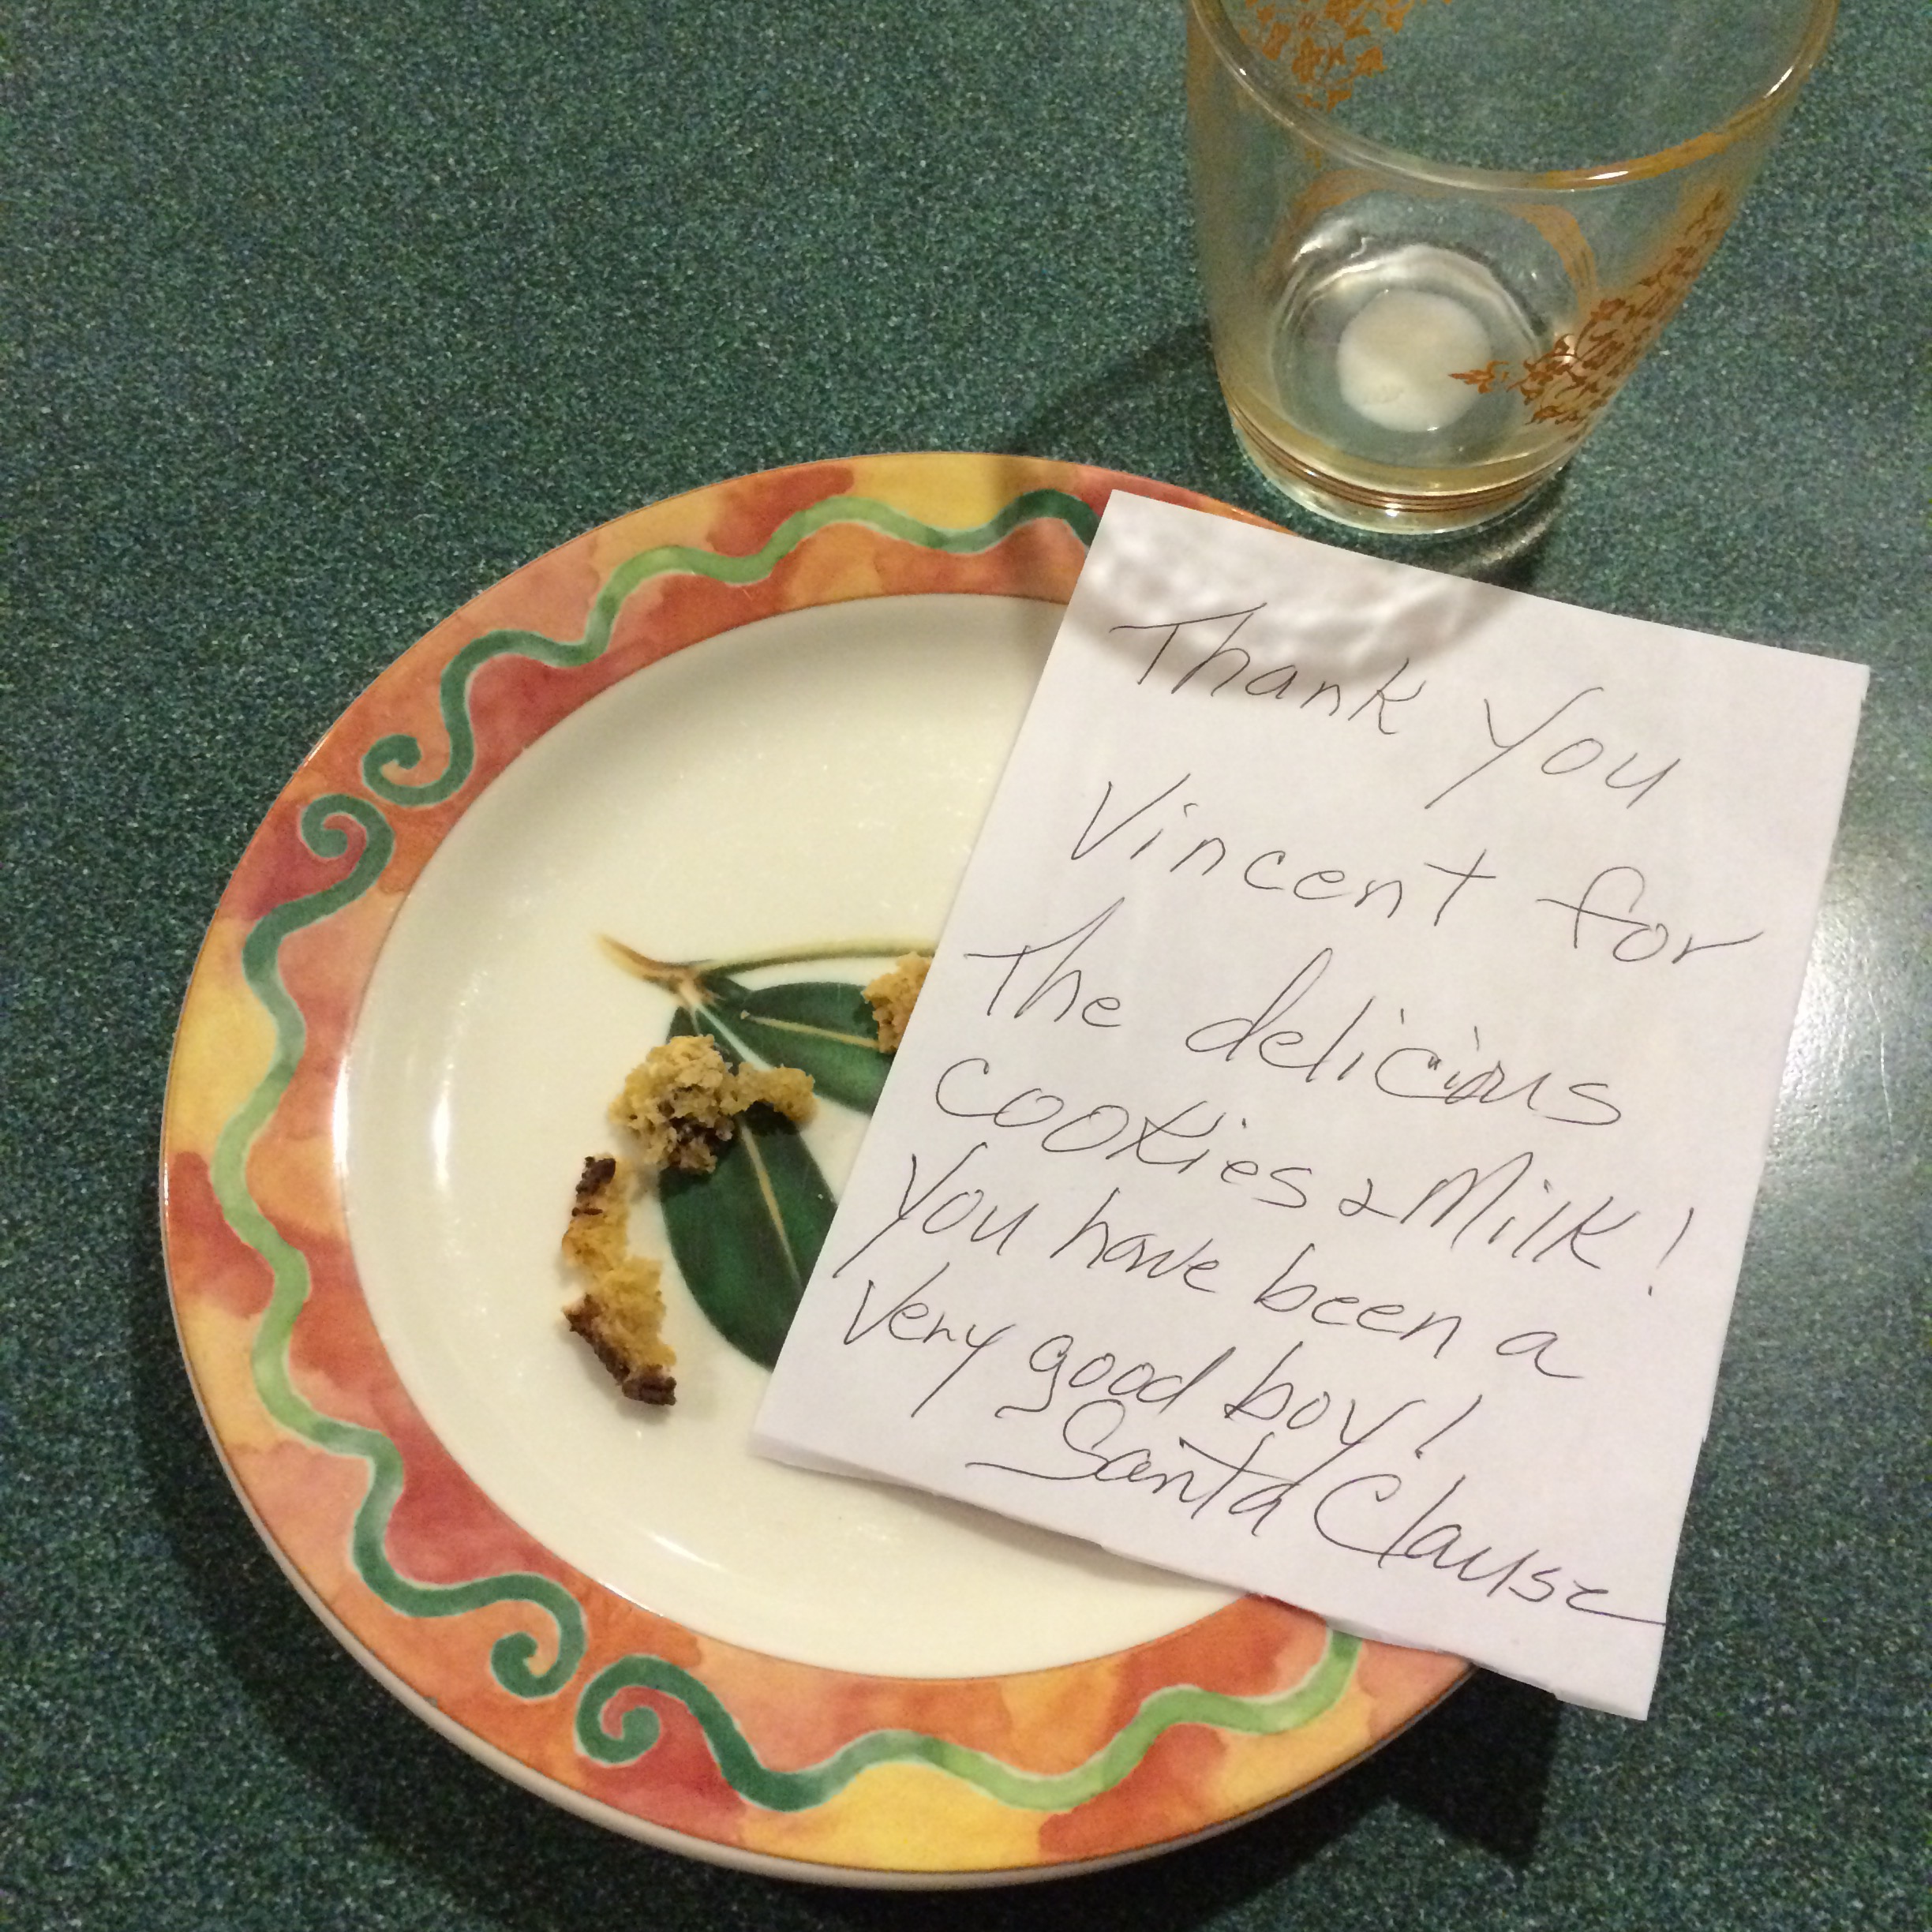 Thank You
Vincent for
The delicious
cookies & Milk!
You have been a
Very good boy!
Santa Clause